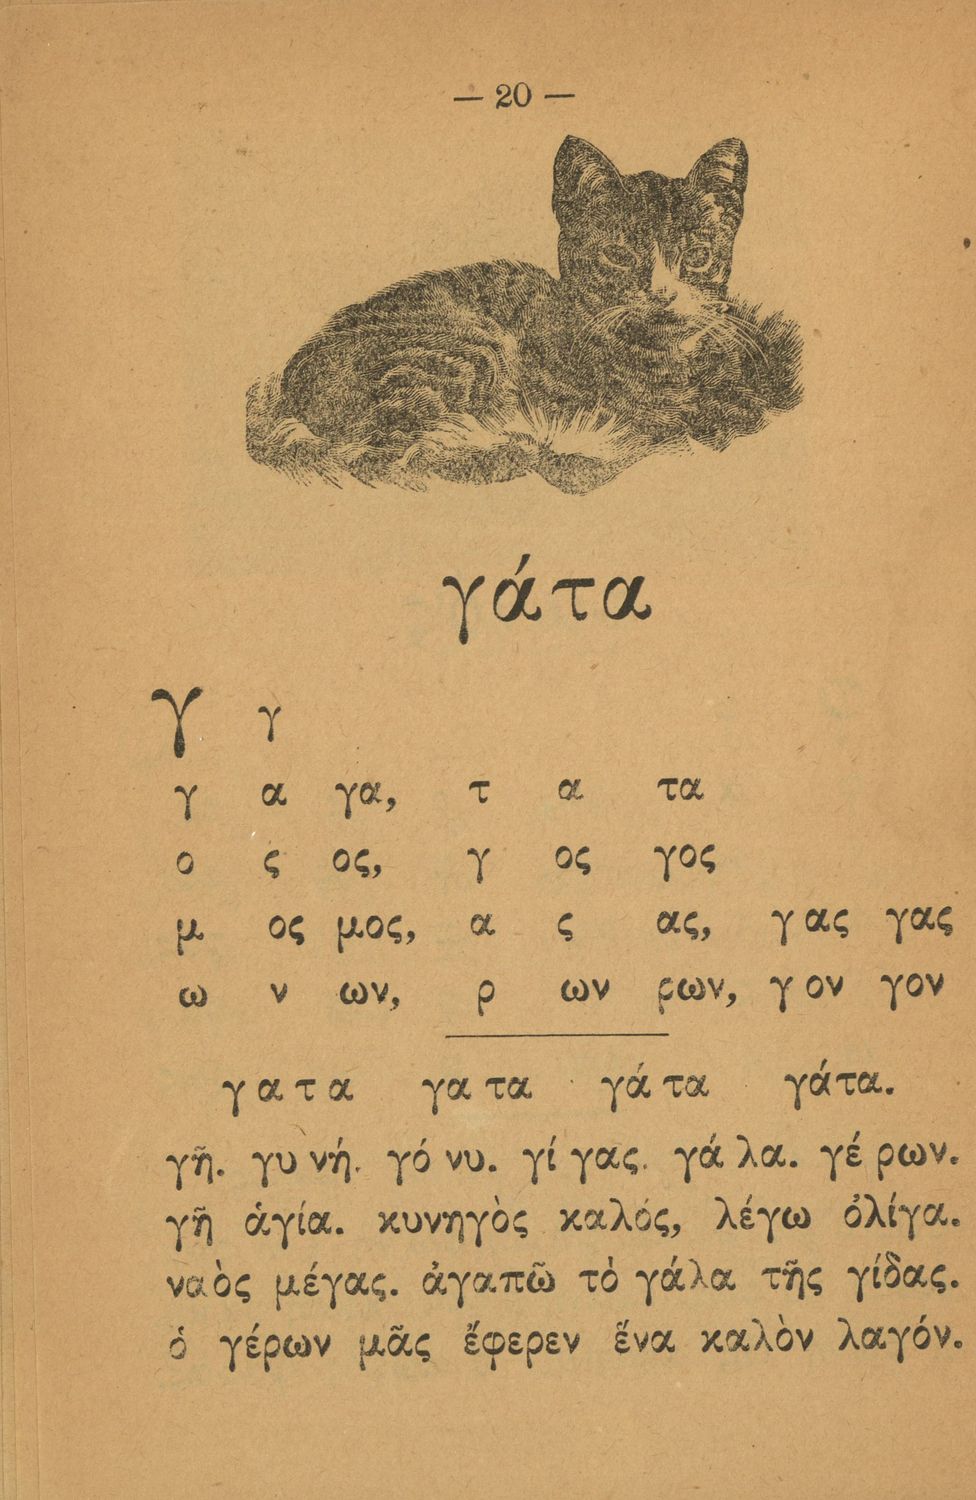 — 20 —
γάτα
Γ γ
γ α γα, τ α τα
ο ς ος, γ ος γος
μ ος μος, α ς ας, γ ας γας
ω ν ων, ρ ων ρων, γ ον γον
γ α τ α γα τα γά τα γάτα.
γῆ. γυ νή. γό νυ. γί γας. γά λα. γέ ρων.
γῆ ἁγία. κυνηγὸς καλός, λέγω ὀλίγα.
ναὸς μέγας. ἀγαπῶ τὸ γάλα τῆς γίδας.
ὁ γέρων μᾶς ἔφερεν ἕνα καλὸν λαγόν.